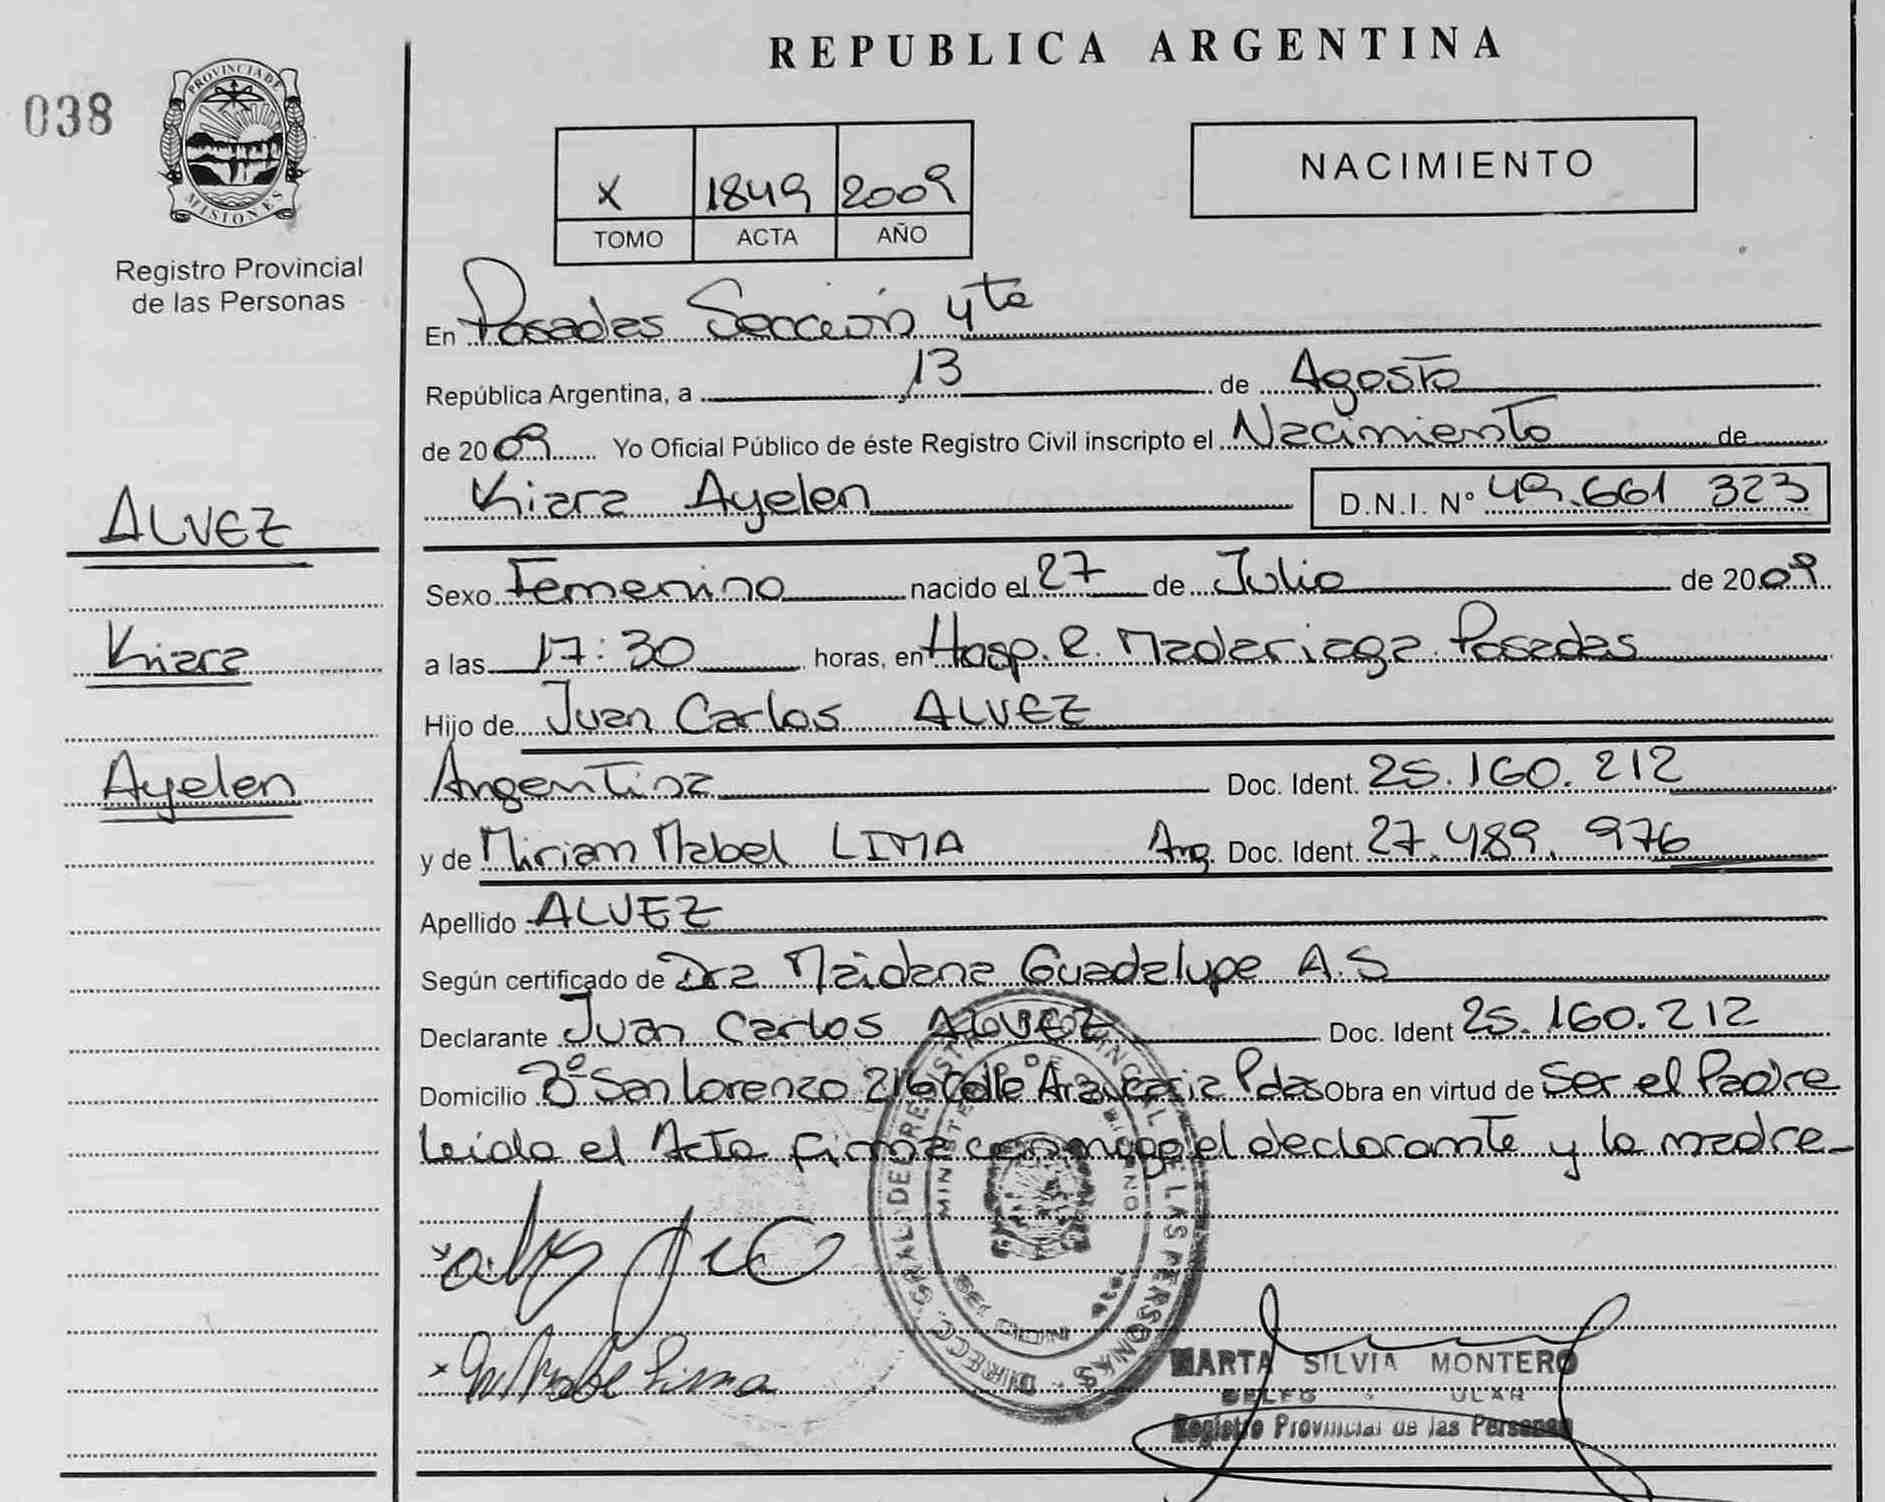 REPUBLICA ARGENTINA
038
PROVINCIA DE
MISIONES
Registro Provincial
de las Personas
X 1849 2009
TOMO ACTA AÑO
NACIMIENTO
En Posadas Sección 4ta
República Argentina, a 13 de Agosto
de 2009 Yo Oficial Público de éste Registro Civil inscripto el Nacimiento de
Kiara Ayelen D.N.I. Nº 49.661 323
ALVEZ
Kiara
Ayelen
Sexo Femenino nacido el 27 de Julio de 2009
a las 17:30 horas, en Hosp. R. Madariaga Posadas
Hijo de Juan Carlos ALVEZ
Argentina Doc. Ident. 25.160.212
y de Mirian Mabel LIMA Arg. Doc. Ident. 27.489.976
Apellido ALVEZ
Según certificado de Dra Maidana Guadalupe A.S
Declarante Juan Carlos ALVEZ Doc. Ident 25.160.212
Domicilio Bº San Lorenzo 216 Calle Araucaria Pdas Obra en virtud de Ser el Padre
leida el Acta firma conmigo el declarante y la madre
DIRECC. GRAL. DEL REGISTRO PROVINCIAL DE LAS PERSONAS
MINISTERIO DE GOBIERNO
MARTA SILVIA MONTERO
Registro Provincial de las Personas